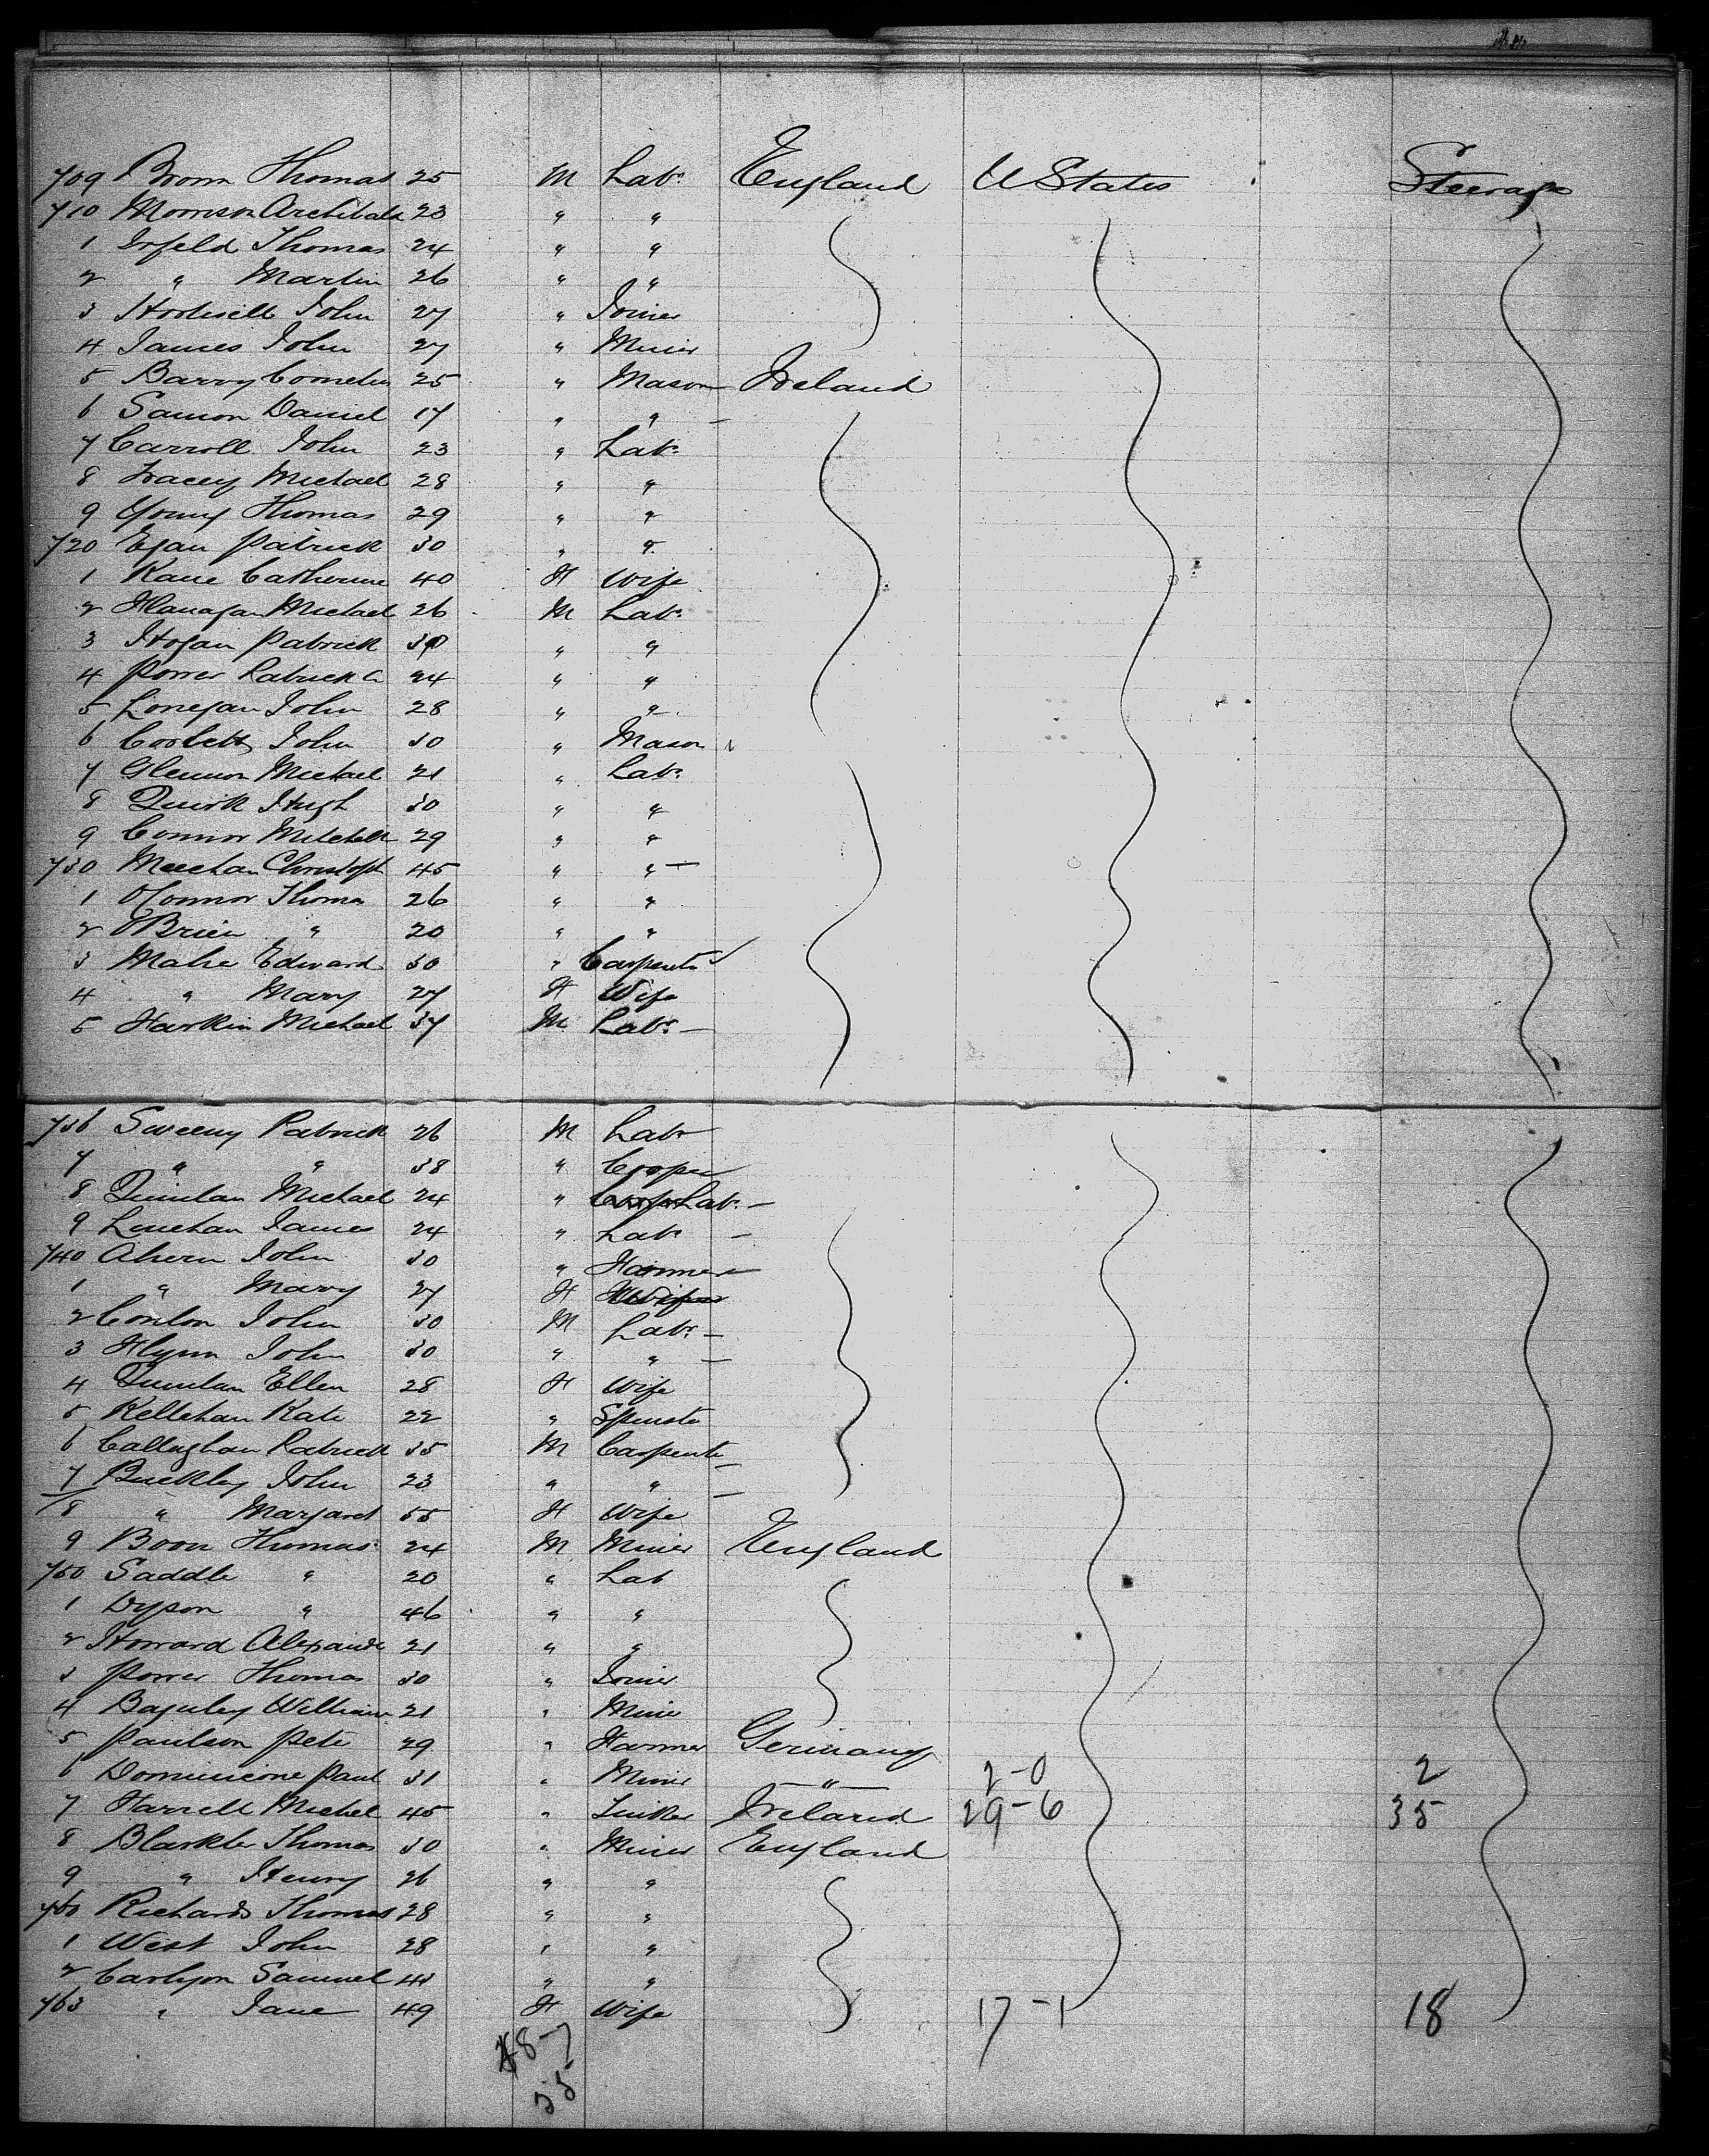 709 Brown Thomas 25 M Labr England U States Steerage
710 Morrison Archibald 23 " "
1 Thomas 24 " "
2 " Martin 26 " "
3 John 27 " Joiner
4 James John 27 " Miner
5 Barry Cornelius 25 " Mason Ireland
6 Daniel 17 " " —
7 Carroll John 23 " Labr
8 Tracey Michael 28 " "
9 Young Thomas 29 " "
720 Egan Patrick 30 " "
1 Kane Catherine 40 F Wife
2 Flanagan Michael 26 M Labr
3 Hogan Patrick " "
4 Power Patrick 24 " "
5 Lonegan John 28 " "
6 Corbett John 30 " Mason
7 Glennon Michael 21 " Labr
8 Quirk Hugh 30 " "
9 Connor Mitchell 29 " "
730 Meechan Christoph 45 " " —
1 O'Connor Thomas 26 " "
2 O'Brien " 20 " "
3 Maher Edward 30 " Carpenter
4 " Mary 27 F Wife
5 Harkin Michael 37 M Labr —
736 Sweeny Patrick 26 M Labr
7 " " 38 " Cooper
8 Quinlan Michael 24 " Labr —
9 Linehan James 24 " Labr —
740 Ahern John 30 " Farmer
1 " Mary 27 F Wife
2 Conlon John 30 M Labr —
3 Flynn John 30 " " —
4 Quinlan Ellen 28 F Wife
5 Kellehan Kate 22 " Spinster
6 Callaghan Patrick 35 M Carpenter —
7 Buckley John 23 " " —
8 " Margaret 55 F Wife
9 Boon Thomas 24 M Miner England
750 Saddle " 20 " Lab
1 Dyson " 46 " "
2 Howard Alexander 21 " "
3 Power Thomas 30 " Joiner
4 Baguley William 21 " Miner
5 Paulson Peter 29 " Farmer Germany
6 Dominicone Paul 31 " Miner — " — 2-0 2
7 Farrell Michel 45 " Ireland 29-6 35
8 Thomas 30 " Miner England
9 " Henry 26 " "
760 Richards Thomas 28 " "
1 West John 28 " "
2 Carlyon Samuel " "
763 " Jane 49 F Wife 17-1 18
48-7
55